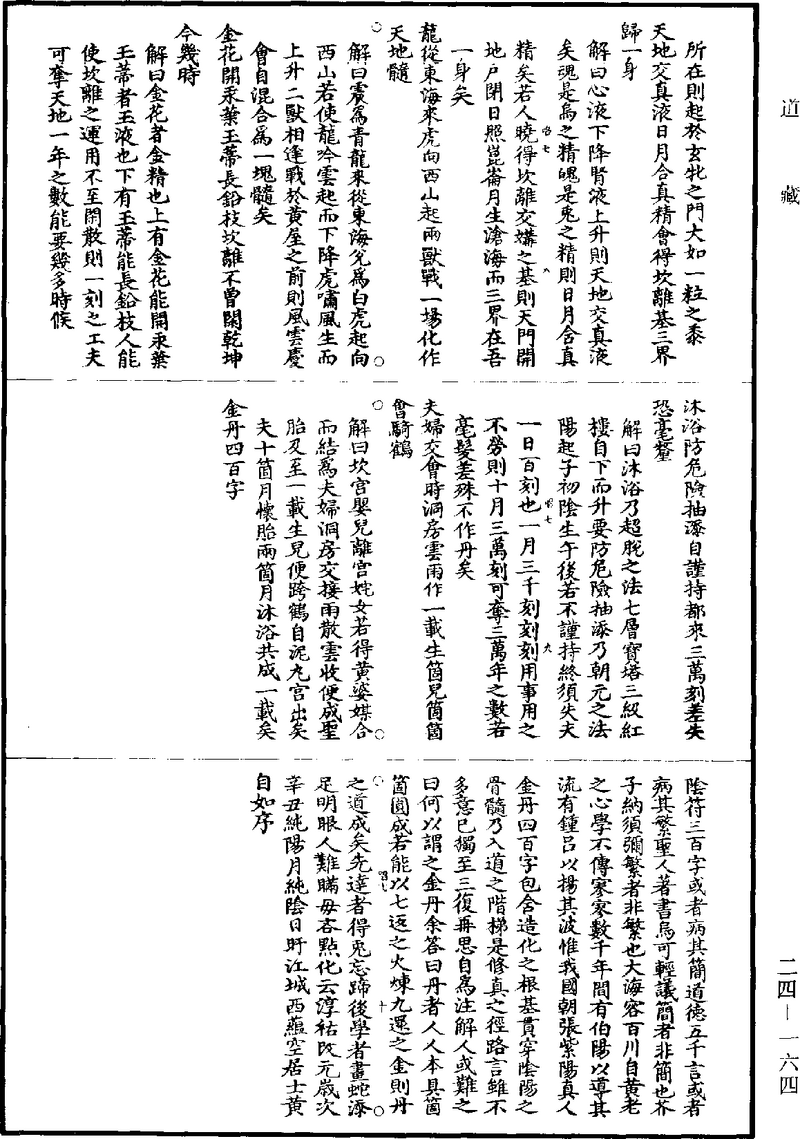 道藏
所在則起於玄牝之門大如一粒之黍
天地交真液日月合真精會得坎離基三界
歸一身
解曰心液下降腎液上升則天地交真液
矣魂是烏之精魄是兎之精則日月合真
精矣若人曉得坎離交媾之基則天門開
地戶閉日照崑崙月生滄海而三界在吾
一身矣
龍從東海來虎向西山起兩獸戰一場化作
天地髓
解曰震為青龍來從東海兌為白虎起向
西山若使龍吟雲起而下降虎嘯風生而
上升二獸相逢戰於黃屋之前則風雲慶
會自混合為一塊髓矣
金花開汞葉玉蒂長鉛枝坎離不曾閑乾坤
今幾時
解曰金花者金精也上有金花能開汞葉
玉蒂者玉液也下有玉蒂能長鉛枝人能
使坎離之運用不至閑散則一刻之工夫
可奪天地一年之數能要幾多時候
沐浴防危險抽添自謹持都來三萬刻差失
恐毫釐
解曰沐浴乃超脫之法七層寶塔三級紅
樓自下而升要防危險抽添乃朝元之法
陽起子初陰生午後若不謹持終須失夫
一日百刻也一月三千刻刻刻用事用之
不勞則十月三萬刻可奪三萬年之數若
毫髮差殊不作丹矣
夫婦交會時洞房雲雨作一載生箇兒箇箇
會騎鶴
解曰坎宮嬰兒離宮姹女若得黃婆媒合
而結為夫婦洞房交接雨散雲收便成聖
胎及至一載生兒便跨鶴自泥丸宮出矣
夫十箇月懷胎兩箇月沐浴共成一載矣
金丹四百字
陰符三百字或者病其簡道德五千言或者
病其繁聖人著書烏可輕議簡者非簡也芥
子納須彌繁者非繁也大海容百川自黃老
之心學不傳寥寥數千年間有伯陽以導其
流有鍾呂以揚其波惟我國朝張紫陽真人
金丹四百字包含造化之根基貫穿陰陽之
骨髓乃入道之階梯是修真之徑路言雖不
多意已獨至三復再思自為注解人或難之
曰何以謂之金丹余答曰丹者人人本具箇
箇圓成若能以七返之火煉九還之金則丹
之道成矣先達者得兎忘蹄後學者畫蛇添
足明眼人難瞞毋吝點化云淳祐改元歲次
辛丑純陽月純陰日旴江城西蘊空居士黃
自如序
二四—一六四